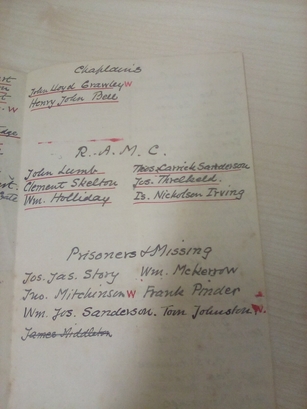 Chaplains
John Lloyd Crawley W
Henry John Bell
R.A.M.C.
John Lumb Thos. Carrick Sanderson
Clement Skelton Jos. Threlkeld.
Wm. Holliday Is. Nicholson Irving
Prisoners & Missing
Jos. Jas. Story Wm. McKerrow
Jno. Mitchinson W Frank Pinder
Wm. Jos. Sanderson. Tom Johnston W.
James Middleton